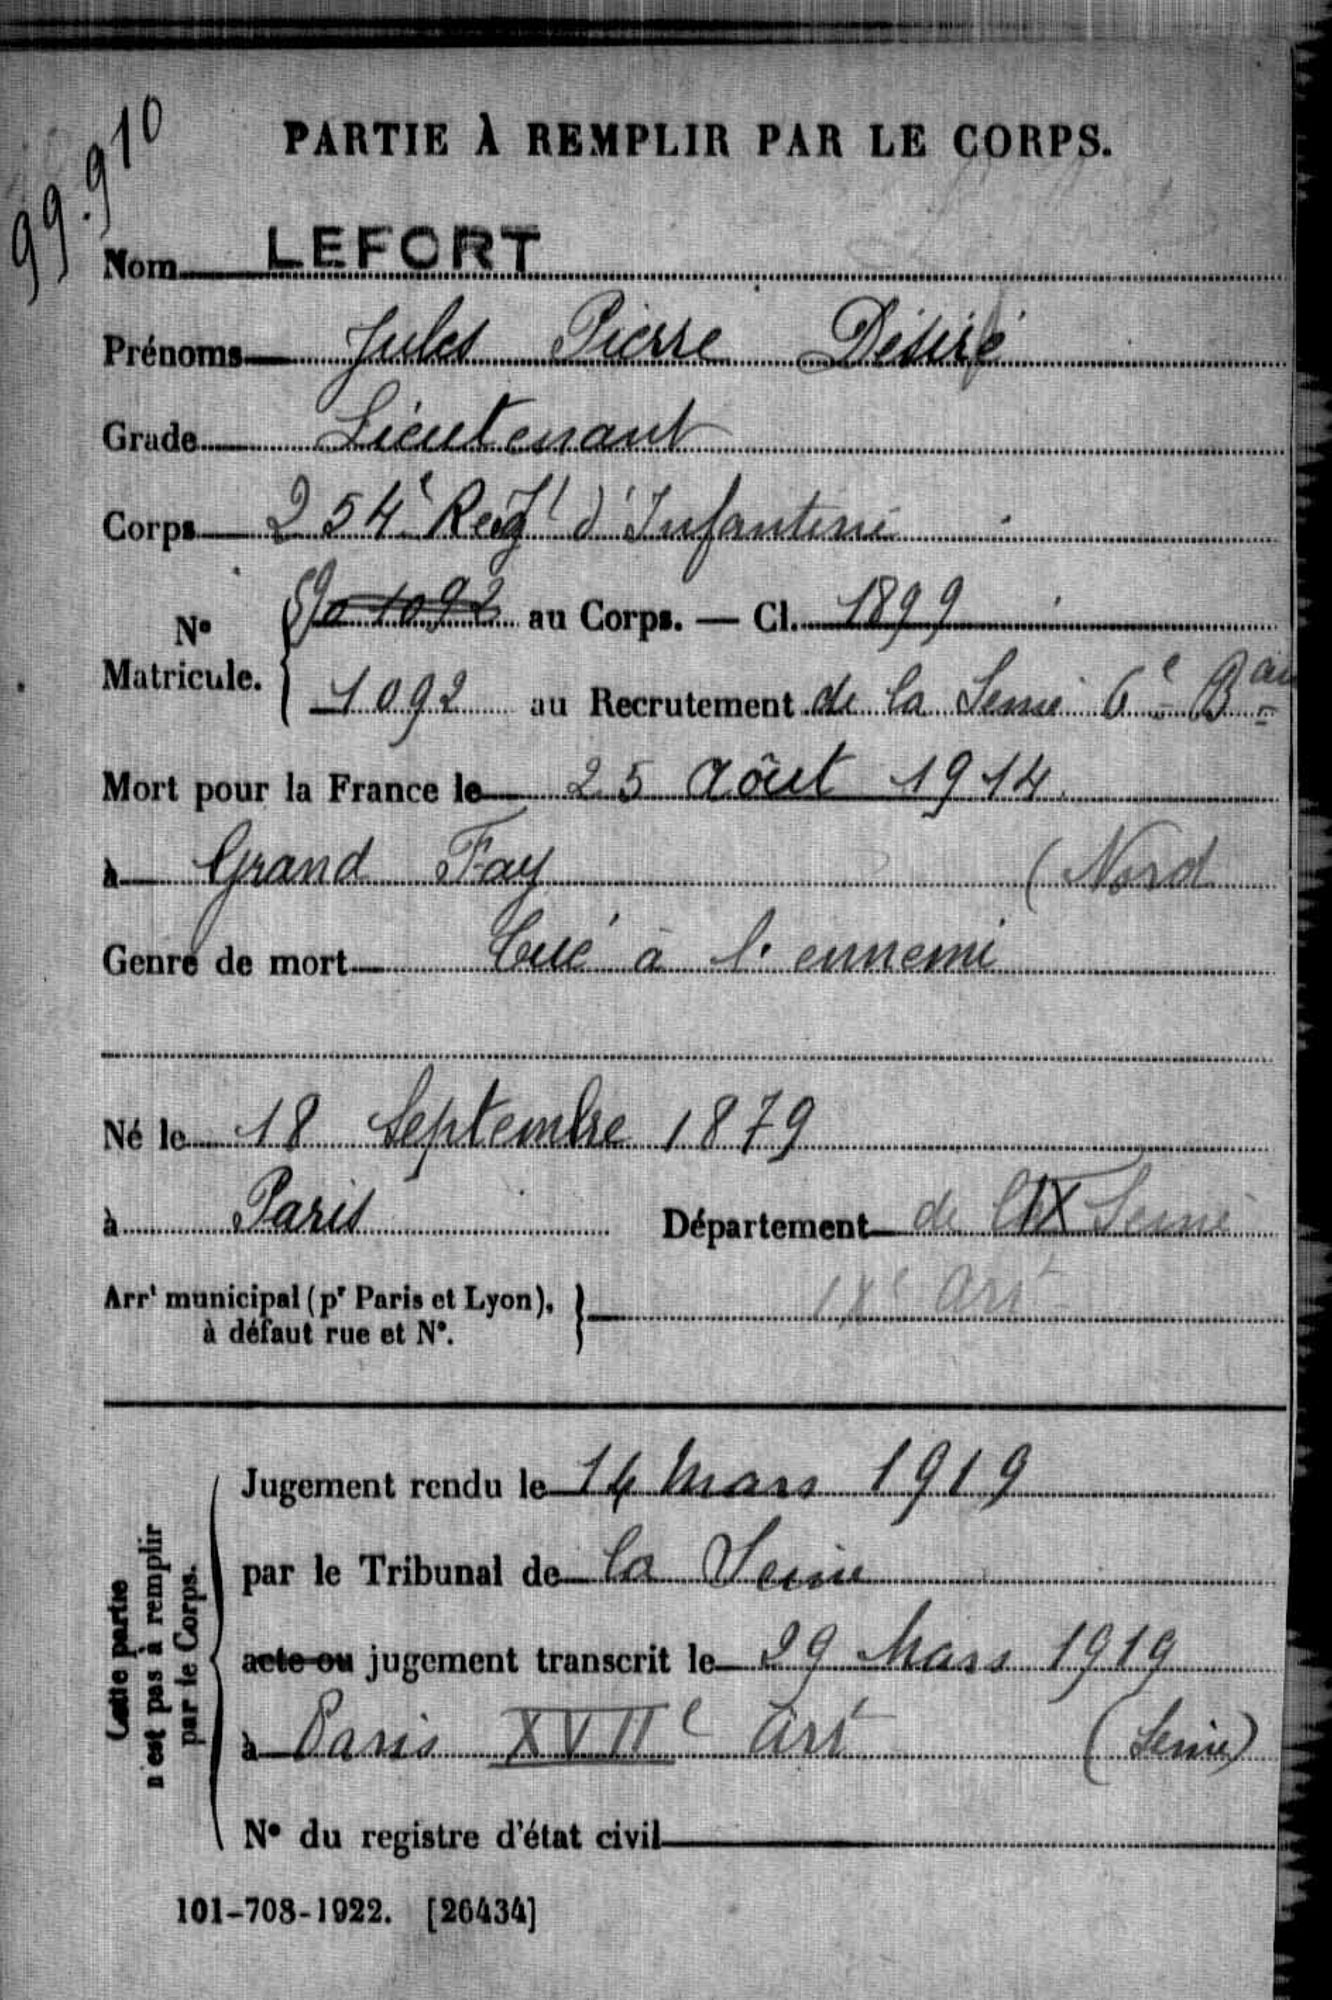 99.910
PARTIE À REMPLIR PAR LE CORPS.
Nom LEFORT
Prénoms Jules Pierre Désiré
Grade Lieutenant
Corps 254e Regt d'Infanterie
No Matricule. 1092 au Corps. — Cl. 1899
1092 au Recrutement de la Seine 6e Bau
Mort pour la France le 25 Aôut 1914
à Grand Fay (Nord
Genre de mort Tué à l'ennemi
Né le 18 Septembre 1879
à Paris Département de la Seine IX
Arrt municipal (pr Paris et Lyon), IXe Arrt
à défaut rue et No.
Cette partie
n'est pas à remplir
par le Corps.
Jugement rendu le 14 Mars 1919
par le Tribunal de la Seine
acte ou jugement transcrit le 29 Mars 1919
à Paris XVIIe Arrt (Seine)
No du registre d'état civil
101-708-1922. [26434]